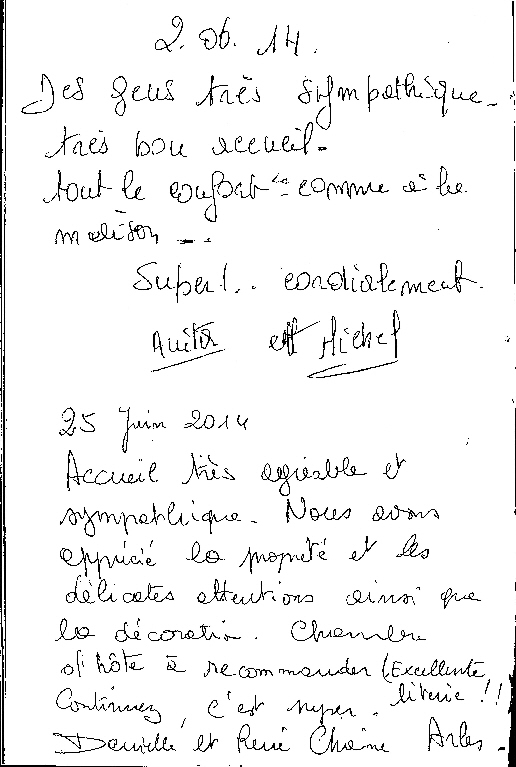 2. 06. 14.
Des gens très sympathique.
très bon accueil.
tout le confort comme à la
maison ...
Super!.. cordialement.
Anita et Michel
25 Juin 2014
Accueil très agréable et
sympathique. Nous avons
apprécié la propreté et les
délicates attentions ainsi que
la décoration. Chambre
d'hôte à recommander (Excellente
literie !!
Continuez, c'est super.
Danielle et René Chaine Arles.